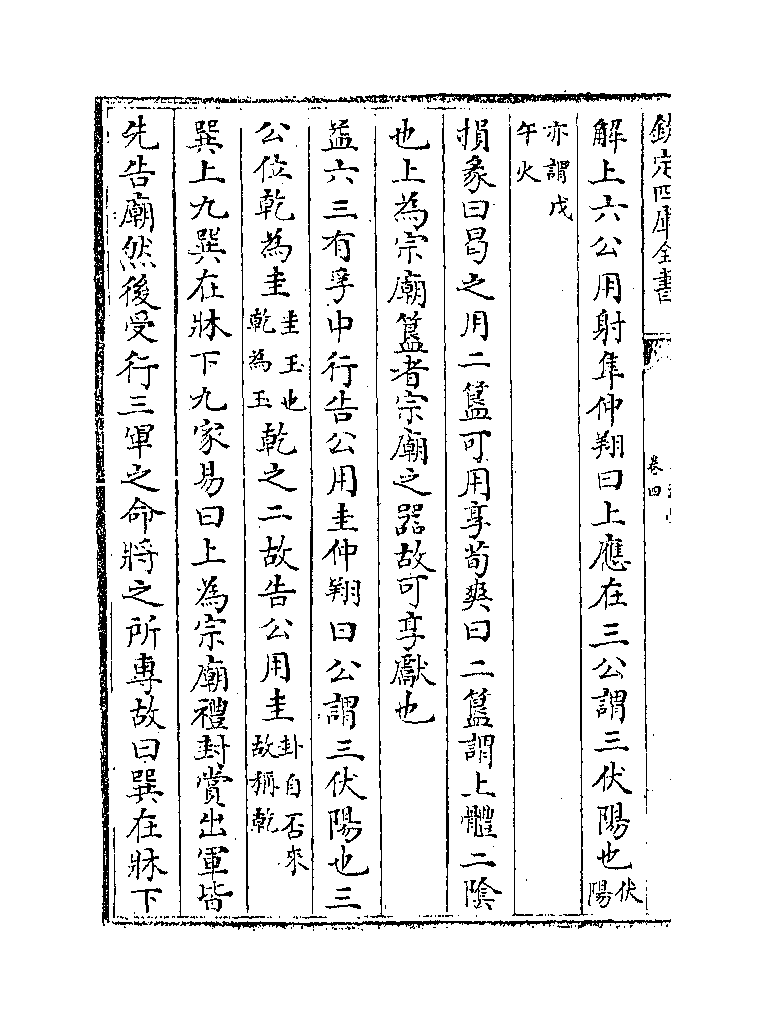 欽定四庫全書
卷四
解上六公用射隼仲翔曰上應在三公謂三伏陽也伏陽
亦謂戊午火
損彖曰曷之用二簋可用享荀爽曰二簋謂上體二陰
也上為宗廟簋者宗廟之器故可享獻也
益六三有孚中行告公用圭仲翔曰公謂三伏陽也三
公位乾為圭圭玉也乾為玉乾之二故告公用圭卦自否來故稱乾
巽上九巽在牀下九家易曰上為宗廟禮封賞出軍皆
先告廟然後受行三軍之命將之所專故曰巽在牀下